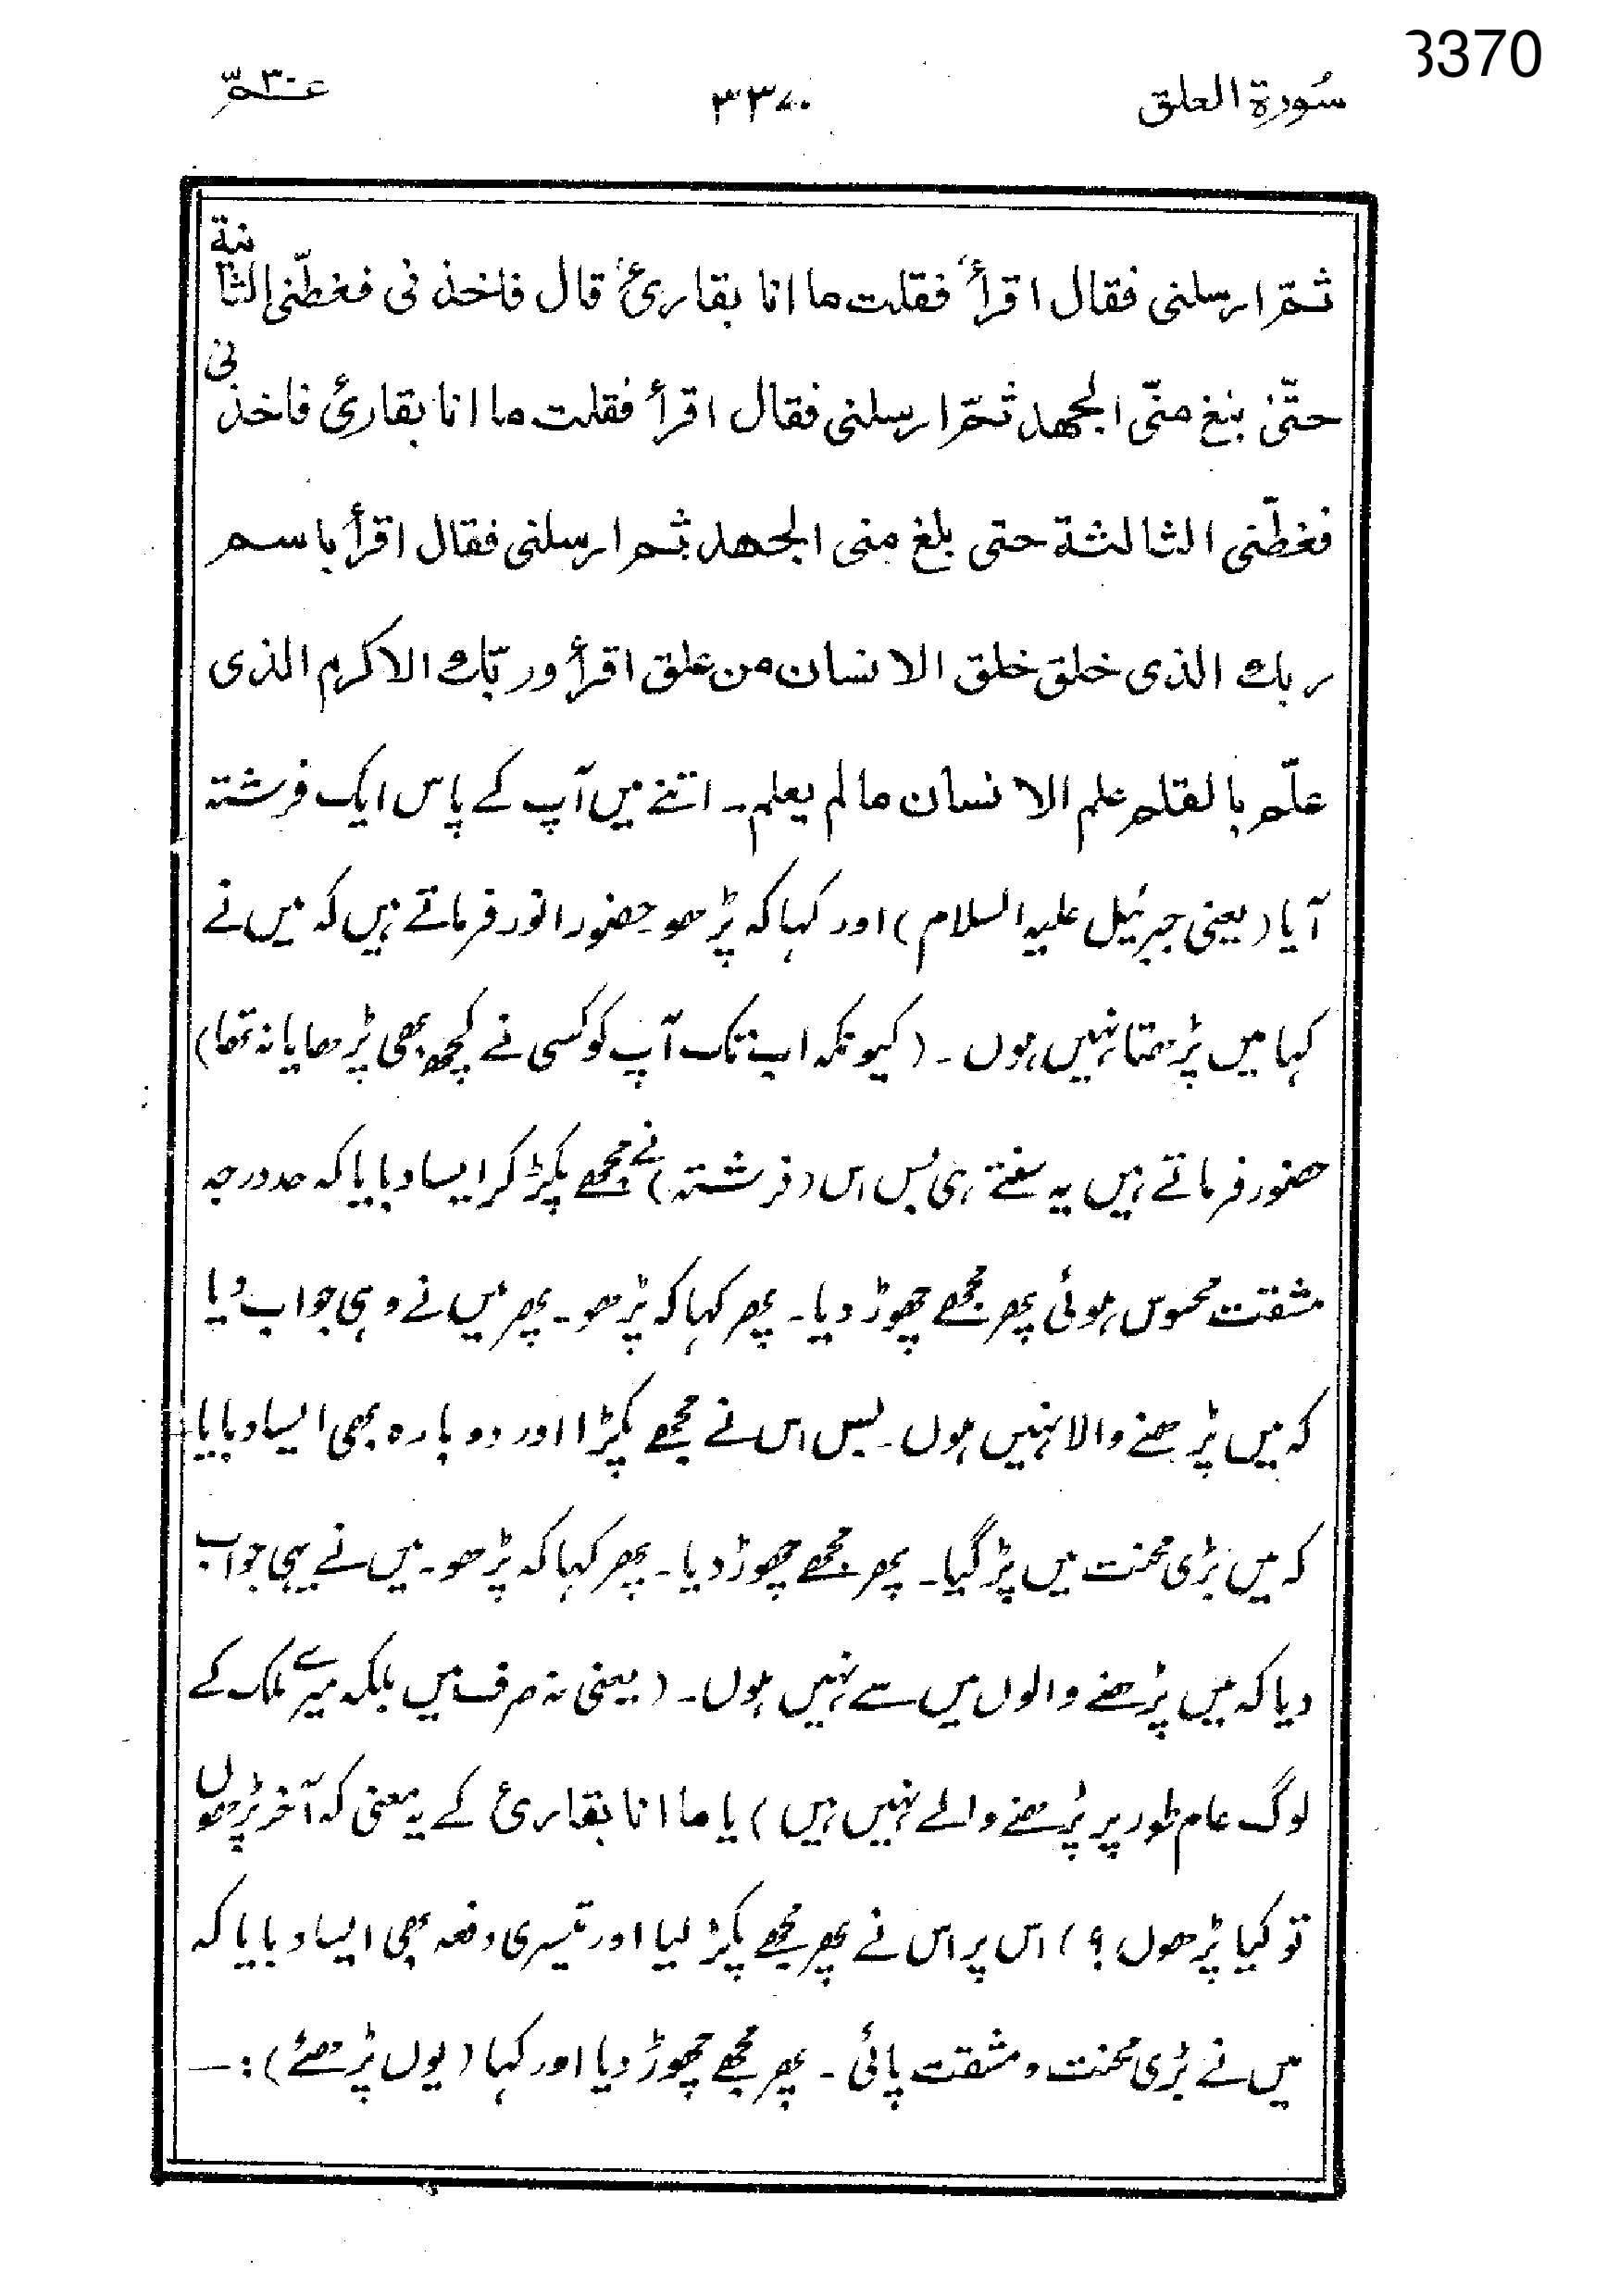 3370
سُورة العلق ۳۳۷۰ عـمّ ۳۰
ثمّ ارسلنی فقال اقرأ، فقلت ما انا بقاریٔ، قال فاخذ نی فغطّنی الثانیة
حتّیٰ بلغ منّی الجھد ثمّ ارسلنی فقال اقرأ فقلت ما انا بقاریٔ فاخذ نی
فغطّنی الثالثة حتی بلغ منی الجھد ثم ارسلنی فقال اقرأ باسم
ربك الذی خلق خلق الانسان من علق اقرأ وربّك الاکرم الذی
علّم بالقلم علم الانسان مالم یعلم۔ اتنے میں آپ کے پاس ایک فرشتہ
آیا (یعنی جبرئیل علیہ السلام) اور کہا کہ پڑھو حضور انور فرماتے ہیں کہ میں نے
کہا میں پڑھتا نہیں ہوں۔ (کیونکہ اب تک آپ کو کسی نے کچھ بھی پڑھایا نہ تھا)
حضور فرماتے ہیں یہ سنتے ہی بس اس (فرشتہ) نے مجھے پکڑ کر ایسا دبایا کہ حد درجہ
مشقت محسوس ہوئی پھر مجھے چھوڑ دیا۔ پھر کہا کہ پڑھو۔ پھر میں نے وہی جواب دیا
کہ میں پڑھنے والا نہیں ہوں۔ بس اس نے مجھے پکڑا اور دوبارہ بھی ایسا دبایا
کہ میں بڑی محنت میں پڑ گیا۔ پھر مجھے چھوڑ دیا۔ پھر کہا کہ پڑھو۔ میں نے یہی جواب
دیا کہ میں پڑھنے والوں میں سے نہیں ہوں۔ (یعنی نہ صرف میں بلکہ میرے ملک کے
لوگ عام طور پر پڑھنے والے نہیں ہیں) یا ما انا بقاریٔ کے یہ معنی کہ آخر پڑھوں
تو کیا پڑھوں؟) اس پر اس نے پھر مجھے پکڑ لیا اور تیسری دفعہ بھی ایسا دبایا کہ
میں نے بڑی محنت و مشقت پائی۔ پھر مجھے چھوڑ دیا اور کہا (یوں پڑھئے):—